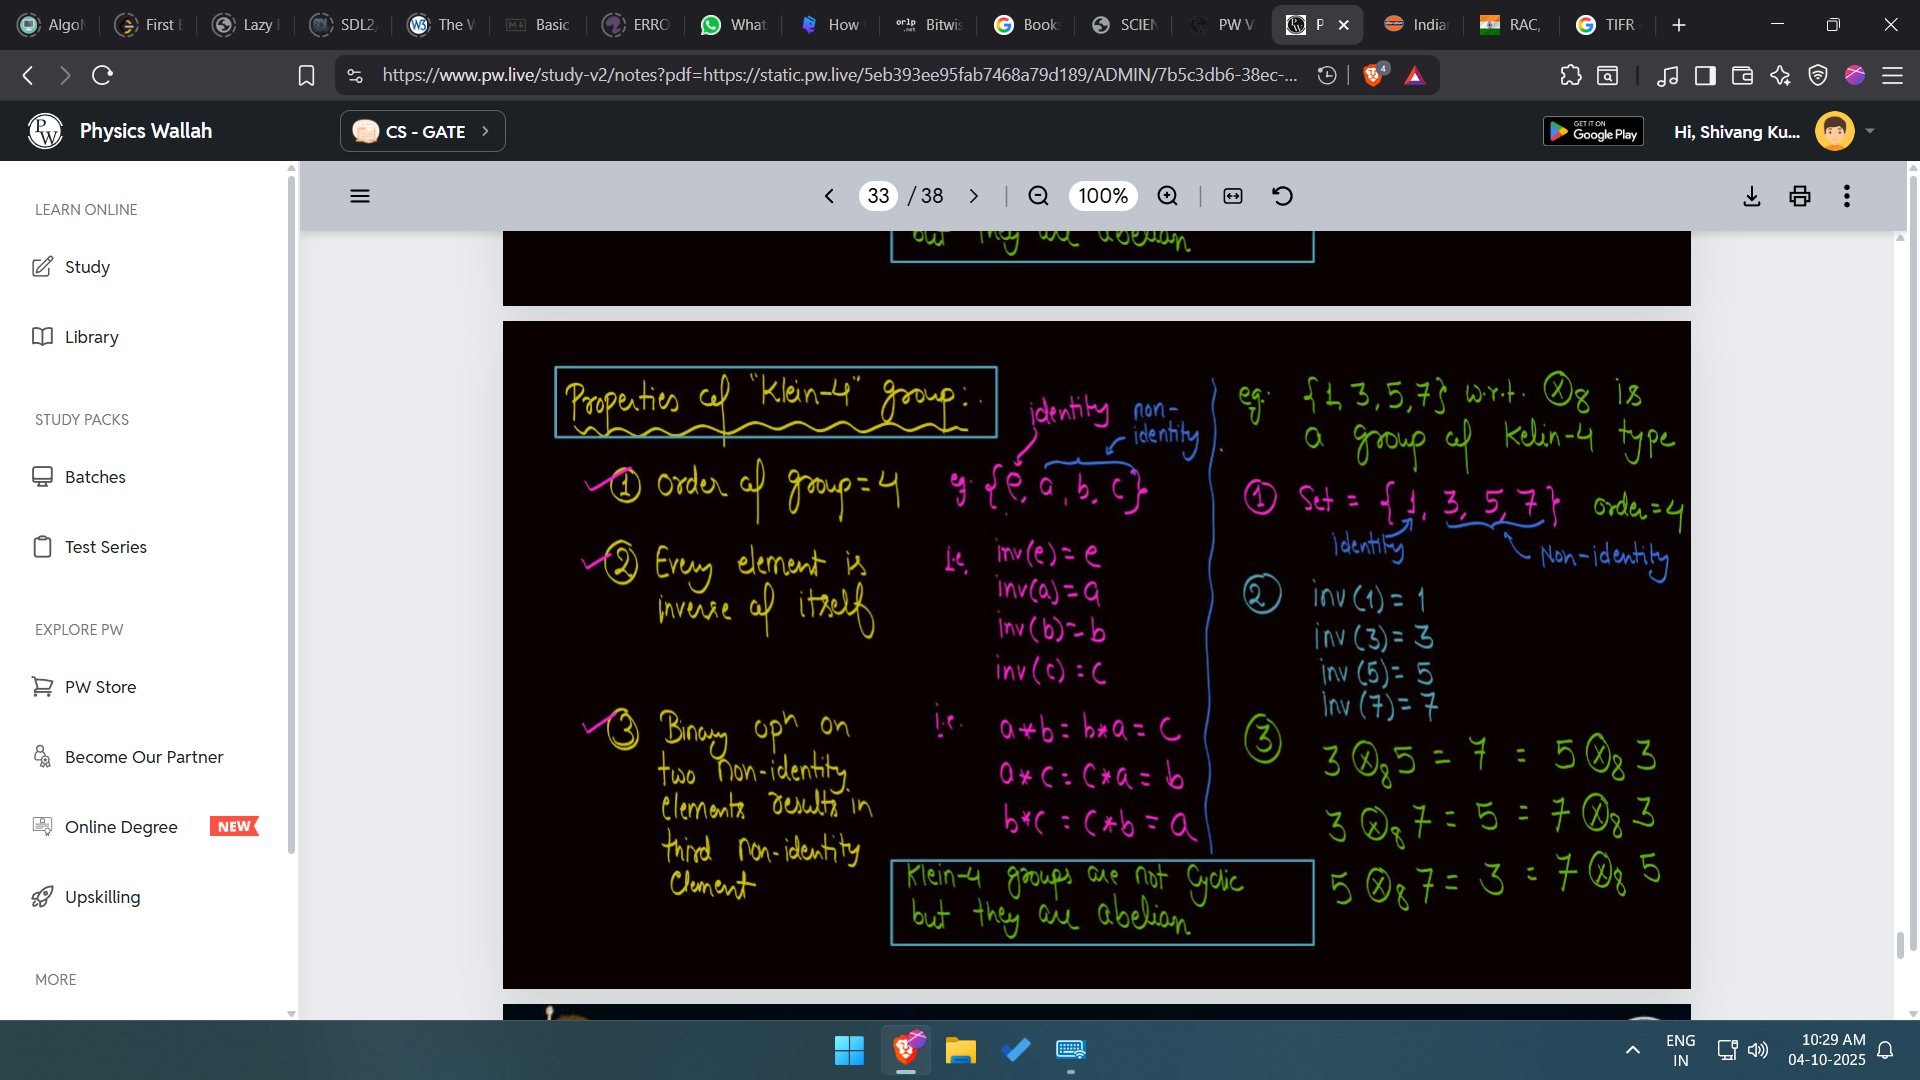 Algo
First
Lazy
SDL2
The W
Basic
ERRO
What
How
Bitwis
Book
SCIEN
PW V
P
India
RAC,
TIFR
https://www.pw.live/study-v2/notes?pdf=https://static.pw.live/5eb393ee95fab7468a79d189/ADMIN/7b5c3db6-38ec-...
4
PW
Physics Wallah
CS - GATE
GET IT ON
Google Play
Hi, Shivang Ku...
33 / 38
100%
LEARN ONLINE
Study
Library
STUDY PACKS
Batches
Test Series
EXPLORE PW
PW Store
Become Our Partner
Online Degree NEW
Upskilling
MORE
but they are abelian
Properties of "Klein-4" group:
identity
non-
identity
① order of group = 4
eg. {e, a, b, c}
② Every element is
inverse of itself
i.e. inv(e) = e
inv(a) = a
inv(b) = b
inv(c) = c
③ Binary opn on
two non-identity
elements results in
third non-identity
element
i.e. a*b = b*a = c
a*c = c*a = b
b*c = c*b = a
Klein-4 groups are not cyclic
but they are abelian
eg. {1, 3, 5, 7} w.r.t. ⊗8 is
a group of Kelin-4 type
① Set = {1, 3, 5, 7} order = 4
identity
Non-identity
② inv(1) = 1
inv(3) = 3
inv(5) = 5
inv(7) = 7
③ 3 ⊗8 5 = 7 = 5 ⊗8 3
3 ⊗8 7 = 5 = 7 ⊗8 3
5 ⊗8 7 = 3 = 7 ⊗8 5
ENG
IN
10:29 AM
04-10-2025